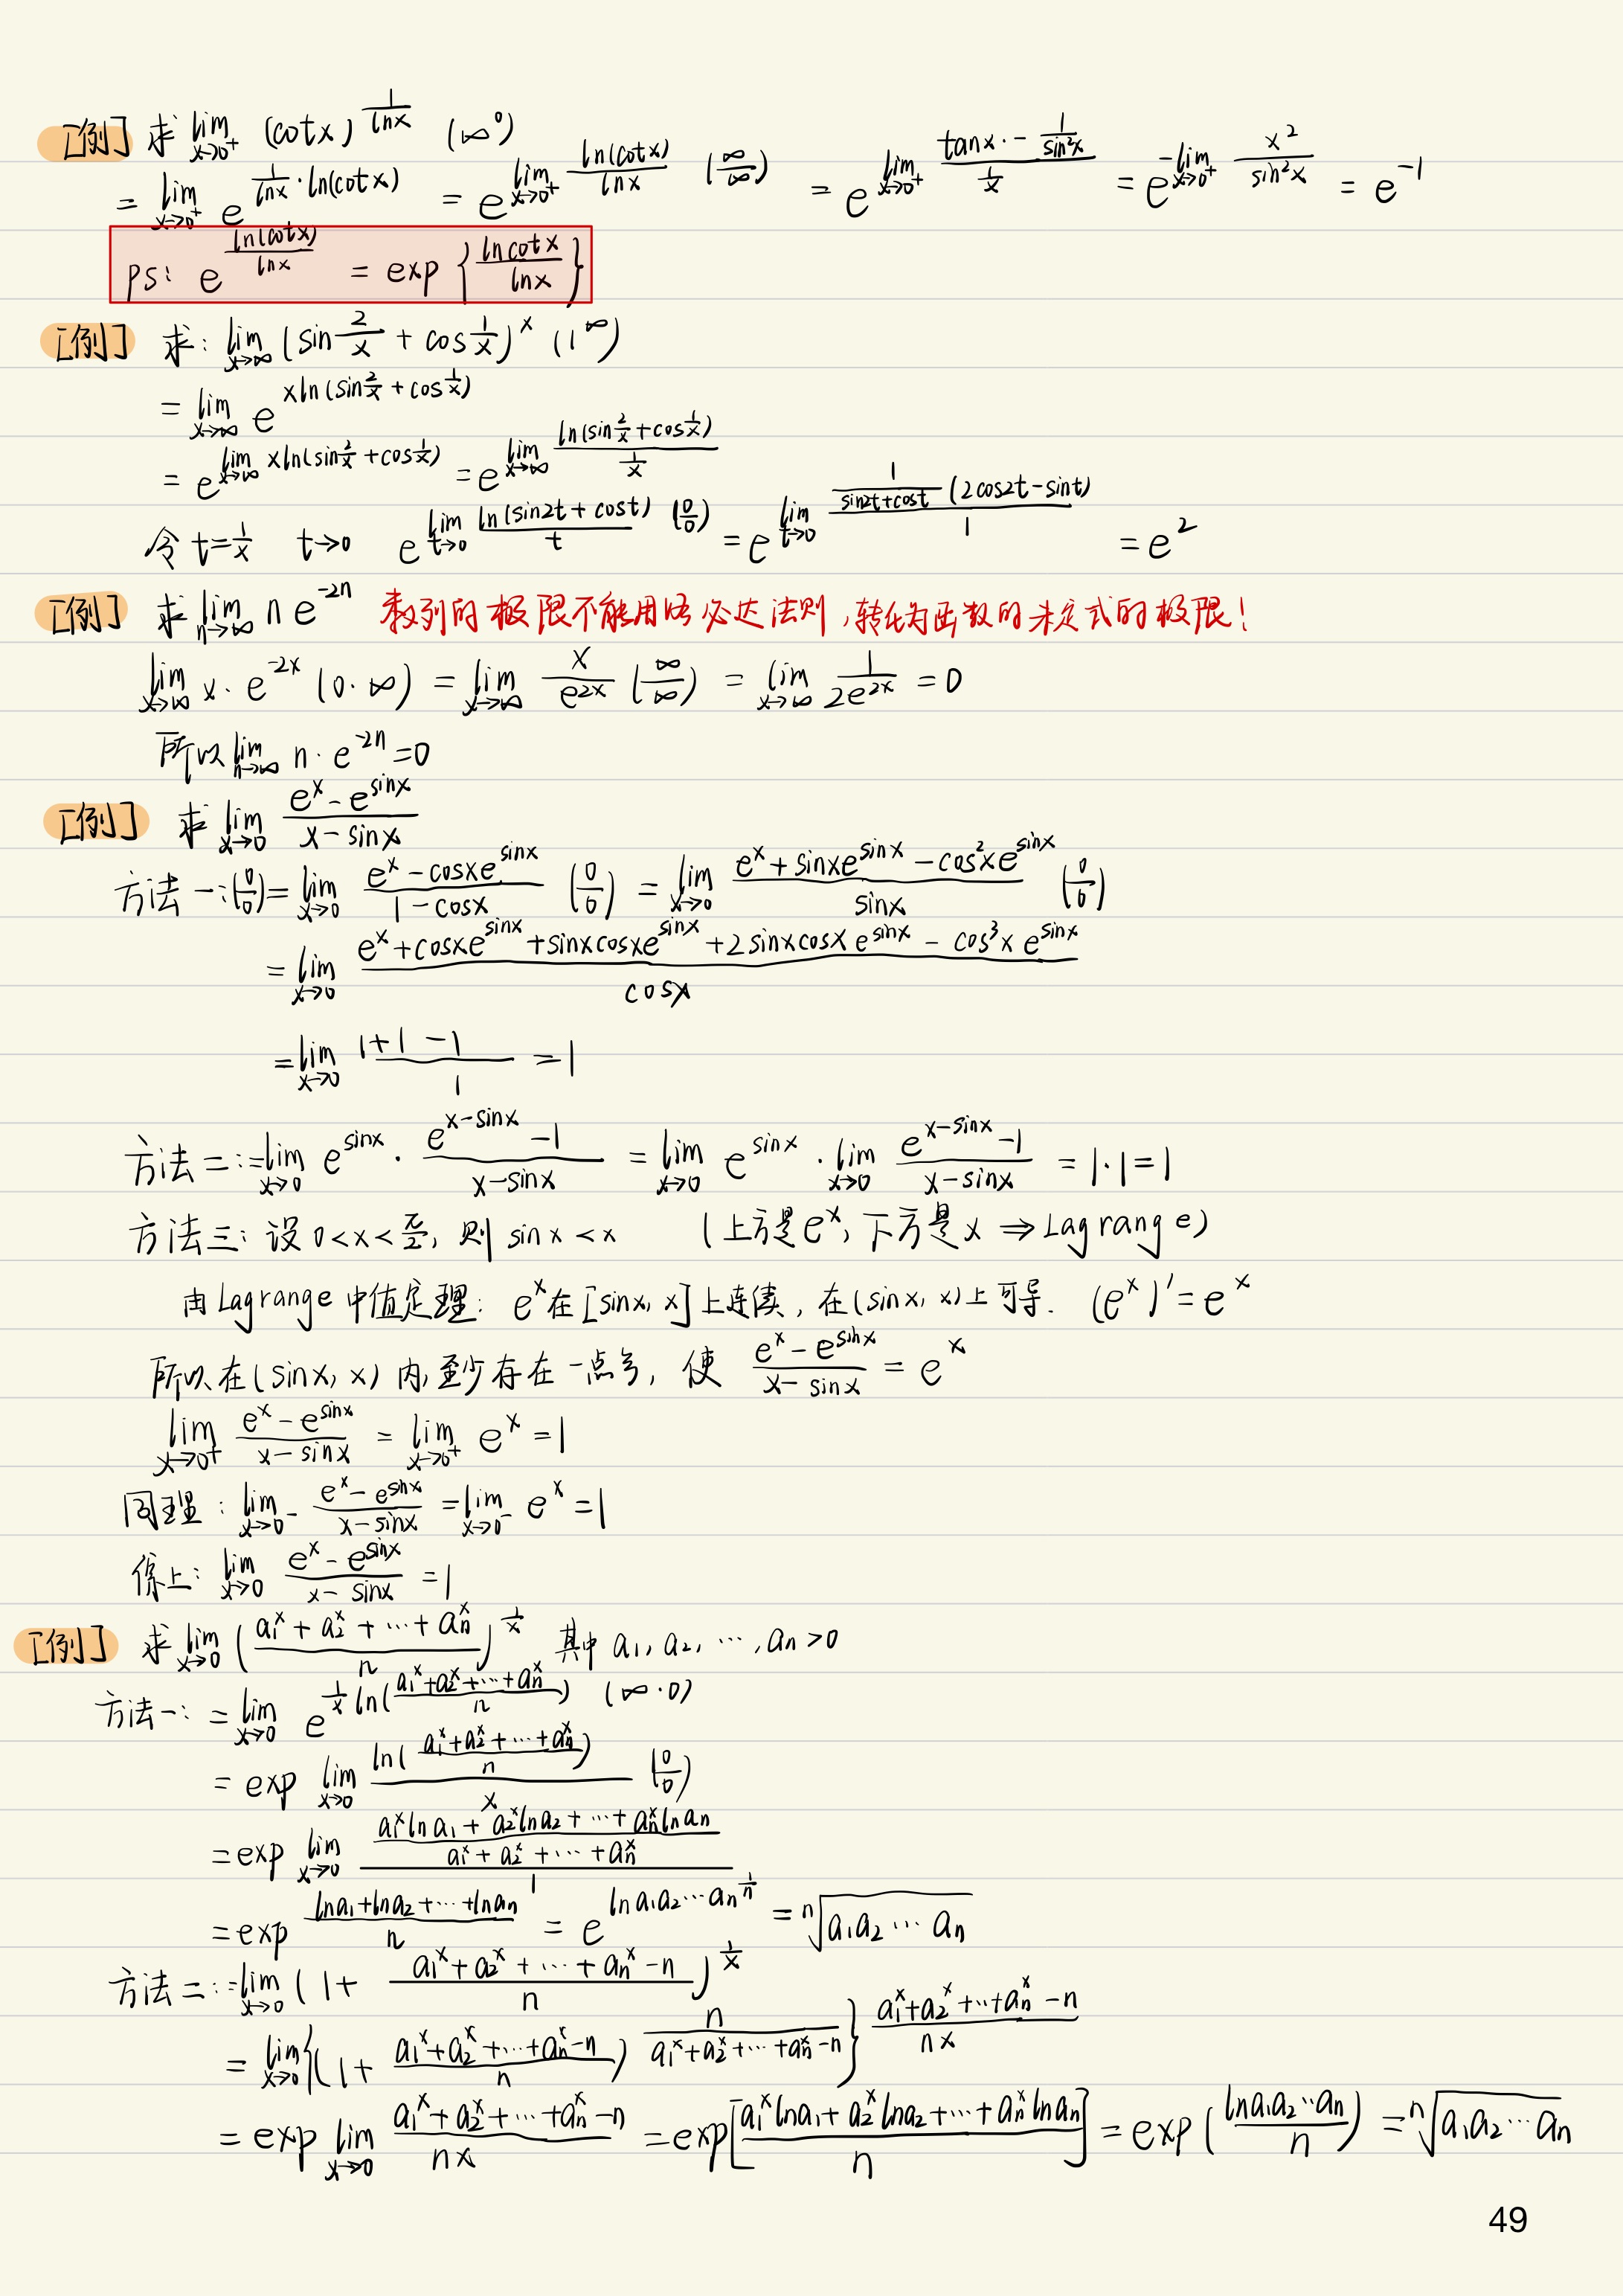 [例] 求 $\lim_{x\to 0^+} (\cot x)^{\frac{1}{\ln x}}$ $(\infty^0)$
$= \lim_{x\to 0^+} e^{\frac{1}{\ln x}\cdot \ln(\cot x)} = e^{\lim_{x\to 0^+} \frac{\ln(\cot x)}{\ln x}}$ $(\frac{\infty}{\infty})$ $= e^{\lim_{x\to 0^+} \frac{\tan x\cdot -\frac{1}{\sin^2 x}}{\frac{1}{x}}} = e^{-\lim_{x\to 0^+} \frac{x^2}{\sin^2 x}} = e^{-1}$
PS: $e^{\frac{\ln(\cot x)}{\ln x}} = \exp\left\{\frac{\ln\cot x}{\ln x}\right\}$
[例] 求: $\lim_{x\to\infty} (\sin\frac{2}{x} + \cos\frac{1}{x})^x$ $(1^\infty)$
$= \lim_{x\to\infty} e^{x\ln(\sin\frac{2}{x} + \cos\frac{1}{x})}$
$= e^{\lim_{x\to\infty} x\ln(\sin\frac{2}{x} + \cos\frac{1}{x})} = e^{\lim_{x\to\infty} \frac{\ln(\sin\frac{2}{x}+\cos\frac{1}{x})}{\frac{1}{x}}}$
令 $t=\frac{1}{x}$ $t\to 0$ $e^{\lim_{t\to 0} \frac{\ln(\sin 2t + \cos t)}{t}}$ $(\frac{0}{0})$ $= e^{\lim_{t\to 0} \frac{\frac{1}{\sin 2t+\cos t}(2\cos 2t-\sin t)}{1}} = e^2$
[例] 求 $\lim_{n\to\infty} n e^{-2n}$ 数列的极限不能用洛必达法则,转化为函数的未定式的极限!
$\lim_{x\to\infty} x\cdot e^{-2x}$ $(0\cdot\infty)$ $= \lim_{x\to\infty} \frac{x}{e^{2x}}$ $(\frac{\infty}{\infty})$ $= \lim_{x\to\infty} \frac{1}{2e^{2x}} = 0$
所以 $\lim_{n\to\infty} n\cdot e^{-2n} = 0$
[例] 求 $\lim_{x\to 0} \frac{e^x - e^{\sin x}}{x - \sin x}$
方法一: $(\frac{0}{0}) = \lim_{x\to 0} \frac{e^x - \cos x e^{\sin x}}{1-\cos x}$ $(\frac{0}{0})$ $= \lim_{x\to 0} \frac{e^x + \sin x e^{\sin x} - \cos^2 x e^{\sin x}}{\sin x}$ $(\frac{0}{0})$
$= \lim_{x\to 0} \frac{e^x + \cos x e^{\sin x} + \sin x\cos x e^{\sin x} + 2\sin x\cos x e^{\sin x} - \cos^3 x e^{\sin x}}{\cos x}$
$= \lim_{x\to 0} \frac{1+1-1}{1} = 1$
方法二: $= \lim_{x\to 0} e^{\sin x}\cdot \frac{e^{x-\sin x}-1}{x-\sin x} = \lim_{x\to 0} e^{\sin x}\cdot \lim_{x\to 0} \frac{e^{x-\sin x}-1}{x-\sin x} = 1\cdot 1 = 1$
方法三: 设 $0<x<\frac{\pi}{2}$, 则 $\sin x < x$ (上方是 $e^x$, 下方是 $x$ ⇒ Lagrange)
由Lagrange中值定理: $e^x$在$[\sin x, x]$上连续, 在$(\sin x, x)$上可导. $(e^x)' = e^x$
所以在$(\sin x, x)$内,至少存在一点ξ, 使 $\frac{e^x - e^{\sin x}}{x-\sin x} = e^x$
$\lim_{x\to 0^+} \frac{e^x - e^{\sin x}}{x-\sin x} = \lim_{x\to 0^+} e^x = 1$
同理: $\lim_{x\to 0^-} \frac{e^x - e^{\sin x}}{x-\sin x} = \lim_{x\to 0^-} e^x = 1$
综上: $\lim_{x\to 0} \frac{e^x - e^{\sin x}}{x-\sin x} = 1$
[例] 求 $\lim_{x\to 0} \left(\frac{a_1^x + a_2^x + \cdots + a_n^x}{n}\right)^{\frac{1}{x}}$ 其中 $a_1, a_2, \cdots, a_n > 0$
方法一: $= \lim_{x\to 0} e^{\frac{1}{x}\ln(\frac{a_1^x+a_2^x+\cdots+a_n^x}{n})}$ $(\infty\cdot 0)$
$= \exp \lim_{x\to 0} \frac{\ln(\frac{a_1^x+a_2^x+\cdots+a_n^x}{n})}{x}$ $(\frac{0}{0})$
$= \exp \lim_{x\to 0} \frac{\frac{a_1^x\ln a_1 + a_2^x\ln a_2 + \cdots + a_n^x\ln a_n}{a_1^x + a_2^x + \cdots + a_n^x}}{1}$
$= \exp \frac{\ln a_1+\ln a_2+\cdots+\ln a_n}{n} = e^{\ln a_1a_2\cdots a_n^{\frac{1}{n}}} = \sqrt[n]{a_1a_2\cdots a_n}$
方法二: $= \lim_{x\to 0} \left(1+\frac{a_1^x+a_2^x+\cdots+a_n^x-n}{n}\right)^{\frac{1}{x}}$
$= \lim_{x\to 0} \left\{\left(1+\frac{a_1^x+a_2^x+\cdots+a_n^x-n}{n}\right)^{\frac{n}{a_1^x+a_2^x+\cdots+a_n^x-n}}\right\}^{\frac{a_1^x+a_2^x+\cdots+a_n^x-n}{nx}}$
$= \exp \lim_{x\to 0} \frac{a_1^x+a_2^x+\cdots+a_n^x-n}{nx} = \exp\left[\frac{a_1^x\ln a_1+a_2^x\ln a_2+\cdots+a_n^x\ln a_n}{n}\right] = \exp\left(\frac{\ln a_1a_2\cdots a_n}{n}\right) = \sqrt[n]{a_1a_2\cdots a_n}$
49